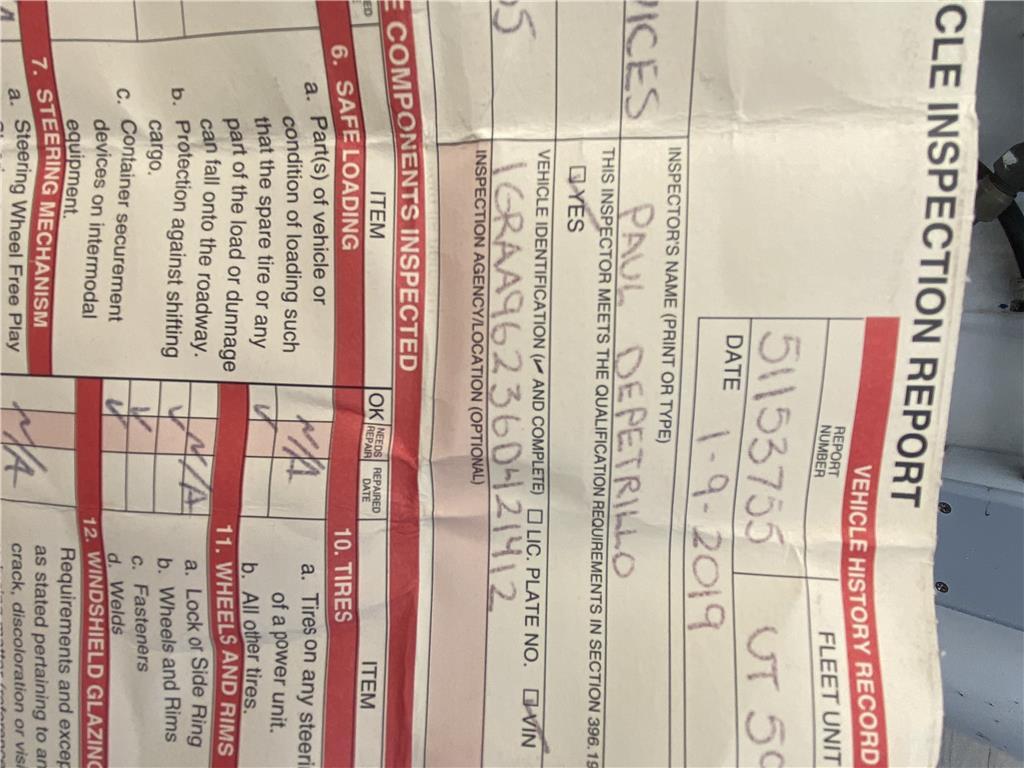 CLE INSPECTION REPORT
VEHICLE HISTORY RECORD
REPORT NUMBER
FLEET UNIT
511537755
UT 50
DATE 1-9-2019
INSPECTOR'S NAME (PRINT OR TYPE)
VICES
PAUL DEPETRILLO
THIS INSPECTOR MEETS THE QUALIFICATION REQUIREMENTS IN SECTION 396.19
YES
VEHICLE IDENTIFICATION (✓ AND COMPLETE) LIC. PLATE NO. VIN
1GRAA96236D421412
INSPECTION AGENCY/LOCATION (OPTIONAL)
E COMPONENTS INSPECTED
ITEM
OK
NEEDS REPAIR
REPAIRED DATE
ITEM
6. SAFE LOADING
a. Part(s) of vehicle or
condition of loading such
that the spare tire or any
part of the load or dunnage
can fall onto the roadway.
b. Protection against shifting
cargo.
c. Container securement
devices on intermodal
equipment.
7. STEERING MECHANISM
a. Steering Wheel Free Play
10. TIRES
N/A
a. Tires on any steeri
of a power unit.
b. All other tires.
11. WHEELS AND RIMS
N/A
a. Lock or Side Ring
b. Wheels and Rims
c. Fasteners
d. Welds
12. WINDSHIELD GLAZING
N/A
Requirements and excep
as stated pertaining to an
crack, discoloration or visi